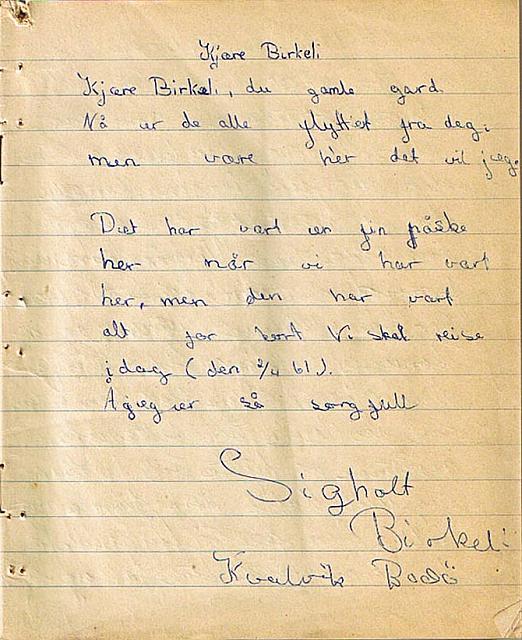 Kjære Birkeli
Kjære Birkeli, du gamle gard.
Nå er de alle flyttet fra deg;
men være her det vil jæg.
Det har vært en fin påske
her når vi har vært
her, men den har vært
alt for kort Vi skal reise
idag (den 2/4 61).
Å jeg er så sorgfull
Sigholt
Birkeli
Kvalvik Bodö